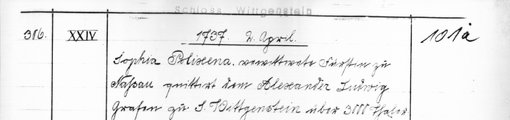 Schloss Wittgenstein
316. XXIV 1737. 2. April. 101a
Sophia Polixena, verwittwete Fürstin zu
Nassau quittirt dem Alexander Ludwig
Grafen zu S. Wittgenstein über 3000 Thaler